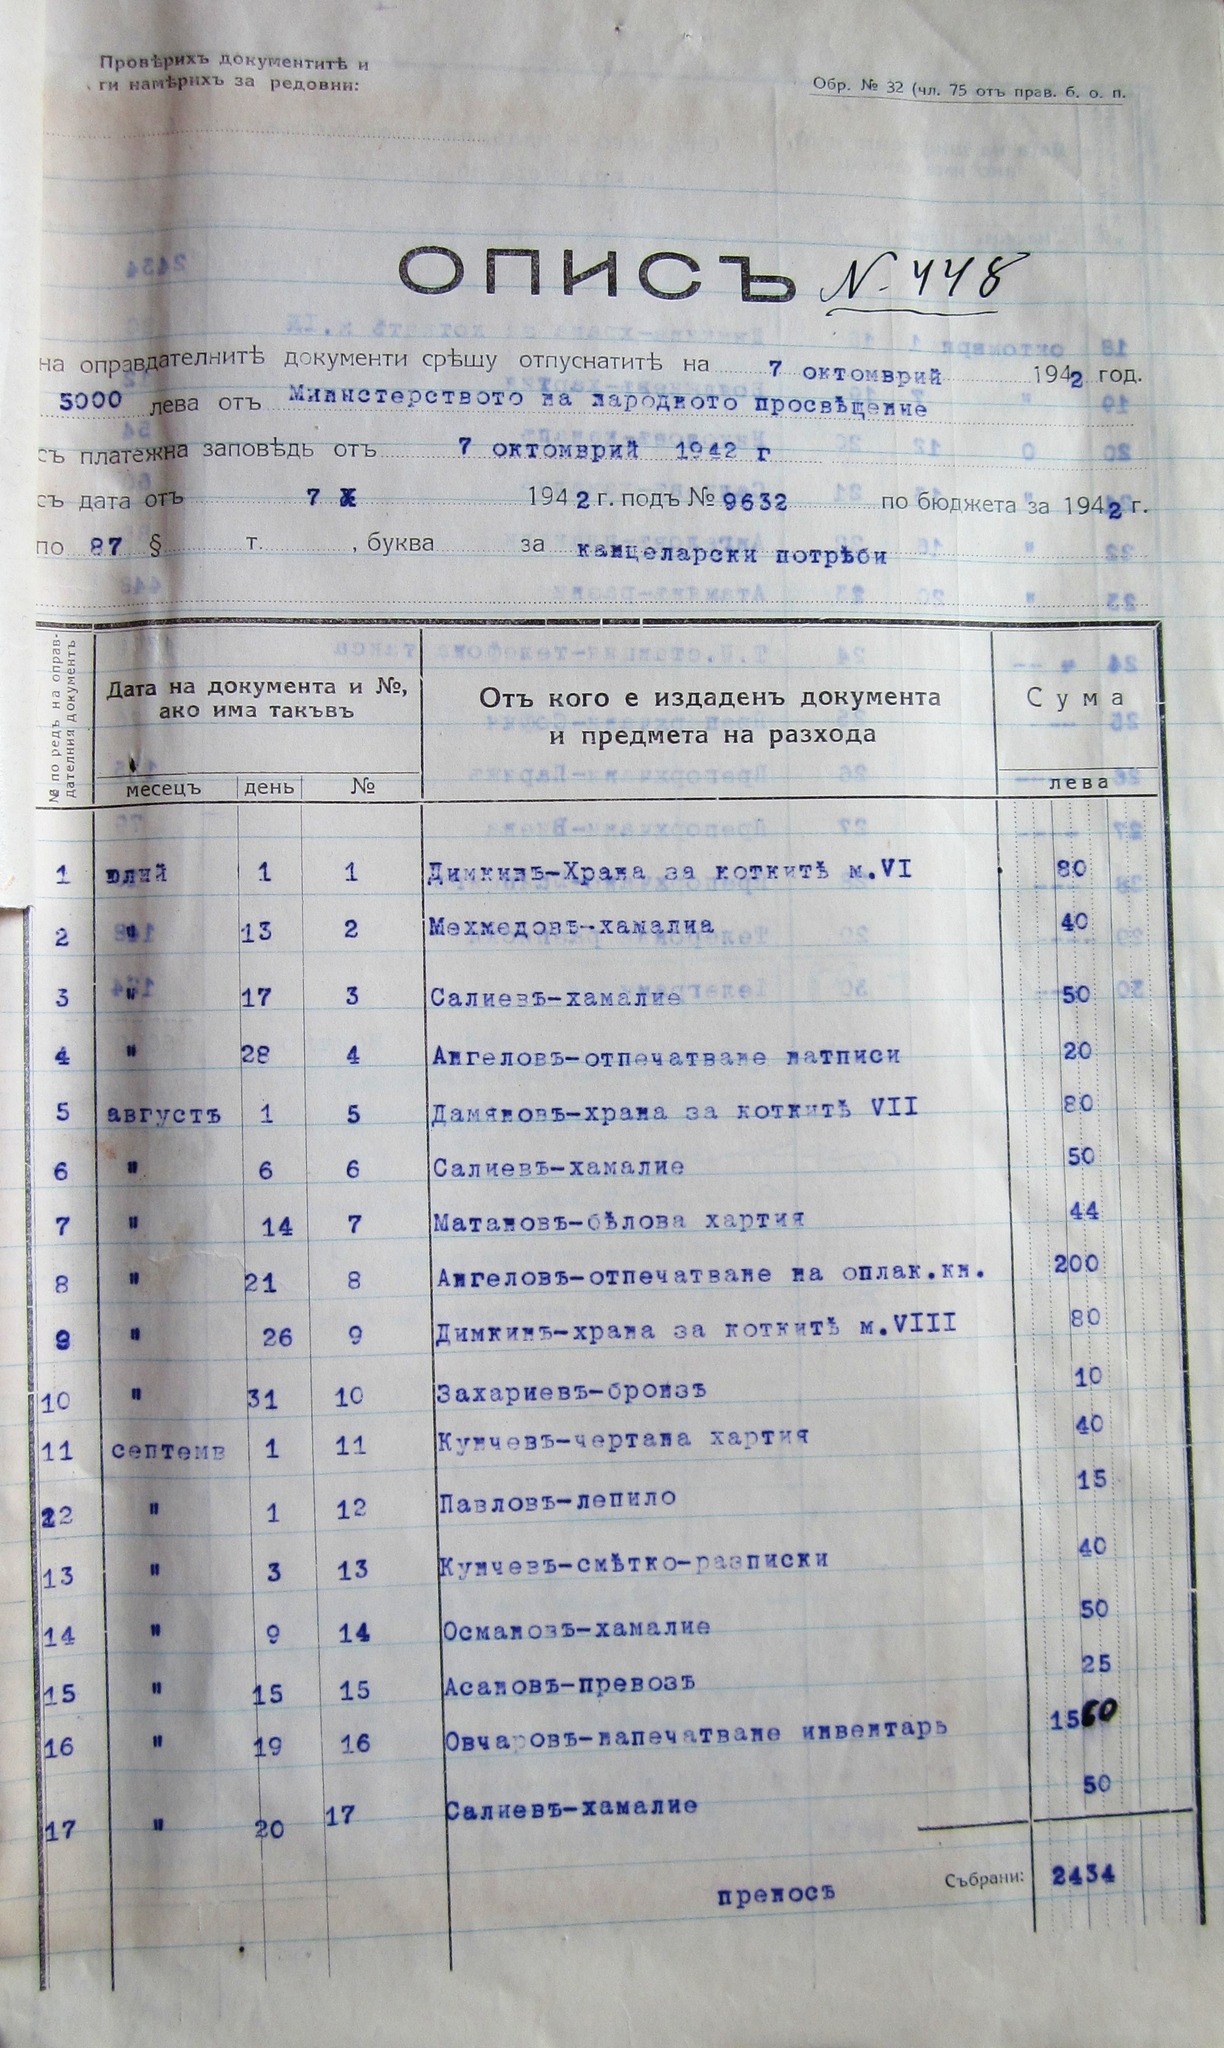 Провѣрихъ документитѣ и
ги намѣрихъ за редовни:
Обр. № 32 (чл. 75 отъ прав. б. о. п.
ОПИСЪ N. 448
на оправдателнитѣ документи срѣщу отпуснатитѣ на 7 октомврий 1942 год.
5000 лева отъ Министерството на народното просвѣщение
съ платежна заповѣдь отъ 7 октомврий 1942 г
съ дата отъ 7 X 1942 г. подъ № 9632 по бюджета за 1942 г.
по 87 § т. , буква за канцеларски потрѣби
№ по редъ на оправ-
дателния документъ
Дата на документа и №,
ако има такъвъ
месецъ день №
Отъ кого е издаденъ документа
и предмета на разхода
Сума
лева
1 юлий 1 1 Димкинъ-Храна за коткитѣ м.VI 80
2 " 13 2 Мехмедовъ-хамалиа 40
3 " 17 3 Салиевъ-хамалие 50
4 " 28 4 Ангеловъ-отпечатване натписи 20
5 августъ 1 5 Дамяновъ-храна за коткитѣ VII 80
6 " 6 6 Салиевъ-хамалие 50
7 " 14 7 Матановъ-бѣлова хартия 44
8 " 21 8 Ангеловъ-отпечатване на оплак.кн. 200
9 " 26 9 Димкинъ-храна за коткитѣ м.VIII 80
10 " 31 10 Захариевъ-бронзъ 10
11 септемв 1 11 Кунчевъ-чертана хартия 40
12 " 1 12 Павловъ-лепило 15
13 " 3 13 Кунчевъ-смѣтко-разписки 40
14 " 9 14 Османовъ-хамалие 50
15 " 15 15 Асановъ-превозъ 25
16 " 19 16 Овчаровъ-напечатване инвентарь 1560
17 " 20 17 Салиевъ-хамалие 50
преносъ Събрани: 2434